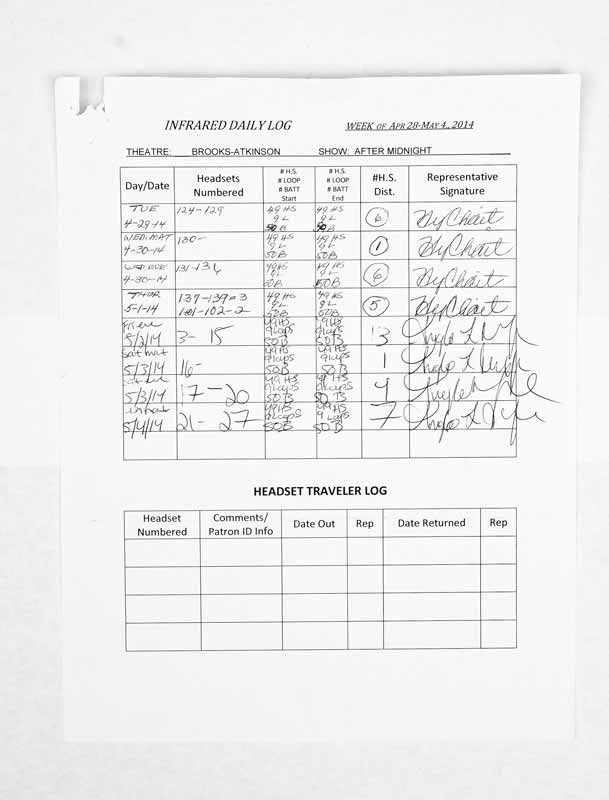 INFRARED DAILY LOG WEEK OF APR 28-MAY 4, 2014
THEATRE: BROOKS-ATKINSON SHOW: AFTER MIDNIGHT
Day/Date Headsets Numbered # H.S. # LOOP # BATT Start # H.S. # LOOP # BATT End #H.S. Dist. Representative Signature
TUE 4-29-14 124-129 49 HS 9 L 50 B 49 HS 9 L 50 B 6
WED. MAT 4-30-14 130- 49 HS 9 L 50B 49 HS 9 L 50B 1
WED. EVE 4-30-14 131-136 49HS 9 L 50B 49HS 9 L 50B 6
THUR 5-1-14 137-139=3 101-102-2 49 HS 9 L 50B 49 HS 9 L 50B 5
5/2/14 3-15 49HS 9Loops 50B 49HS 9Loops 50B 13
Sat mat 5/3/14 16- 49HS 9Loops 50B 49HS 9Loops 50B 1
5/3/14 17-20 49HS 9Loops 50B 49 HS 9Loops 50B 4
5/4/14 21-27 49HS 9Loops 50B 49HS 9 Loops 50B 7
HEADSET TRAVELER LOG
Headset Numbered Comments/ Patron ID Info Date Out Rep Date Returned Rep